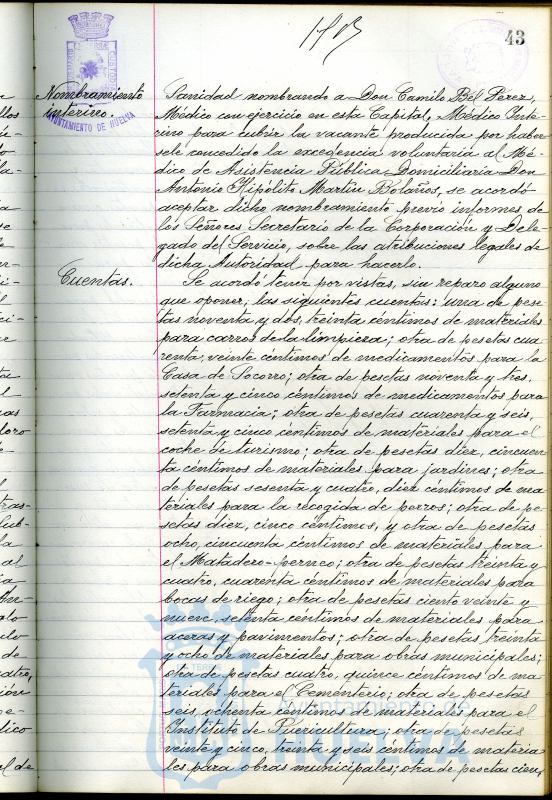 43
Nombramiento
interino.
AYUNTAMIENTO DE HUELVA
Sanidad nombrando a Don Camilo Bel Pérez,
Médico con ejercicio en esta Capital, Médico Inte-
rino para cubrir la vacante producida por haber
sele concedido la excegencia voluntaria al Mé-
dico de Asistencia Pública Domiciliaria Don
Antonio Hipólito Martín Bolaños, se acordó
aceptar dicho nombramiento previo informes de
los Señores Secretario de la Corporación y Dele-
gado del Servicio, sobre las atribuciones legales de
dicha Autoridad para hacerlo.
Cuentas.
Se acordó tener por vistas, sin reparo alguno
que oponer, las siguientes cuentas: una de pese
tas noventa y dos, treinta céntimos de materiales
para carros de la limpieza; otra de pesetas cua
renta, veinte céntimos de medicamentos para la
Casa de Socorro; otra de pesetas noventa y tres,
setenta y cinco céntimos de medicamentos para
la Farmacia; otra de pesetas cuarenta y seis,
setenta y cinco céntimos de materiales para el
coche de turismo; otra de pesetas diez, cincuen
ta céntimos de materiales para jardines; otra
de pesetas sesenta y cuatro, diez céntimos de ma
teriales para la recogida de perros; otra de pe-
setas diez, cinco céntimos, y otra de pesetas
ocho, cincuenta céntimos de materiales para
el Matadero-perneo; otra de pesetas treinta y
cuatro, cuarenta céntimos de materiales para
bocas de riego; otra de pesetas ciento veinte y
nueve, setenta céntimos de materiales para
aceras y pavimentos; otra de pesetas treinta
y ocho de materiales para obras municipales;
otra de pesetas cuatro, quince céntimos de ma
teriales para el Cementerio; otra de pesetas
seis, ochenta céntimos de materiales para el
Instituto de Puericultura; otra de pesetas
veinte y cinco, treinta y seis céntimos de materia
les para obras municipales; otra de pesetas cien,
Ayuntamiento de
HUELVA